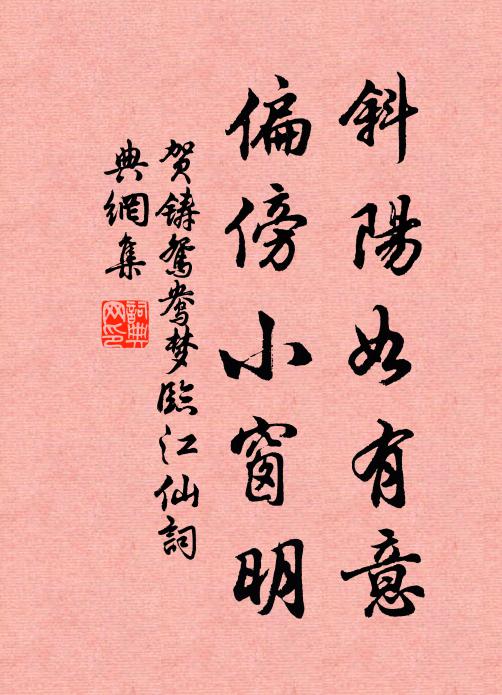 斜陽如有意
偏傍小窗明
贺鑄鴛鴦梦臨江仙詞
典網集
詞典网印